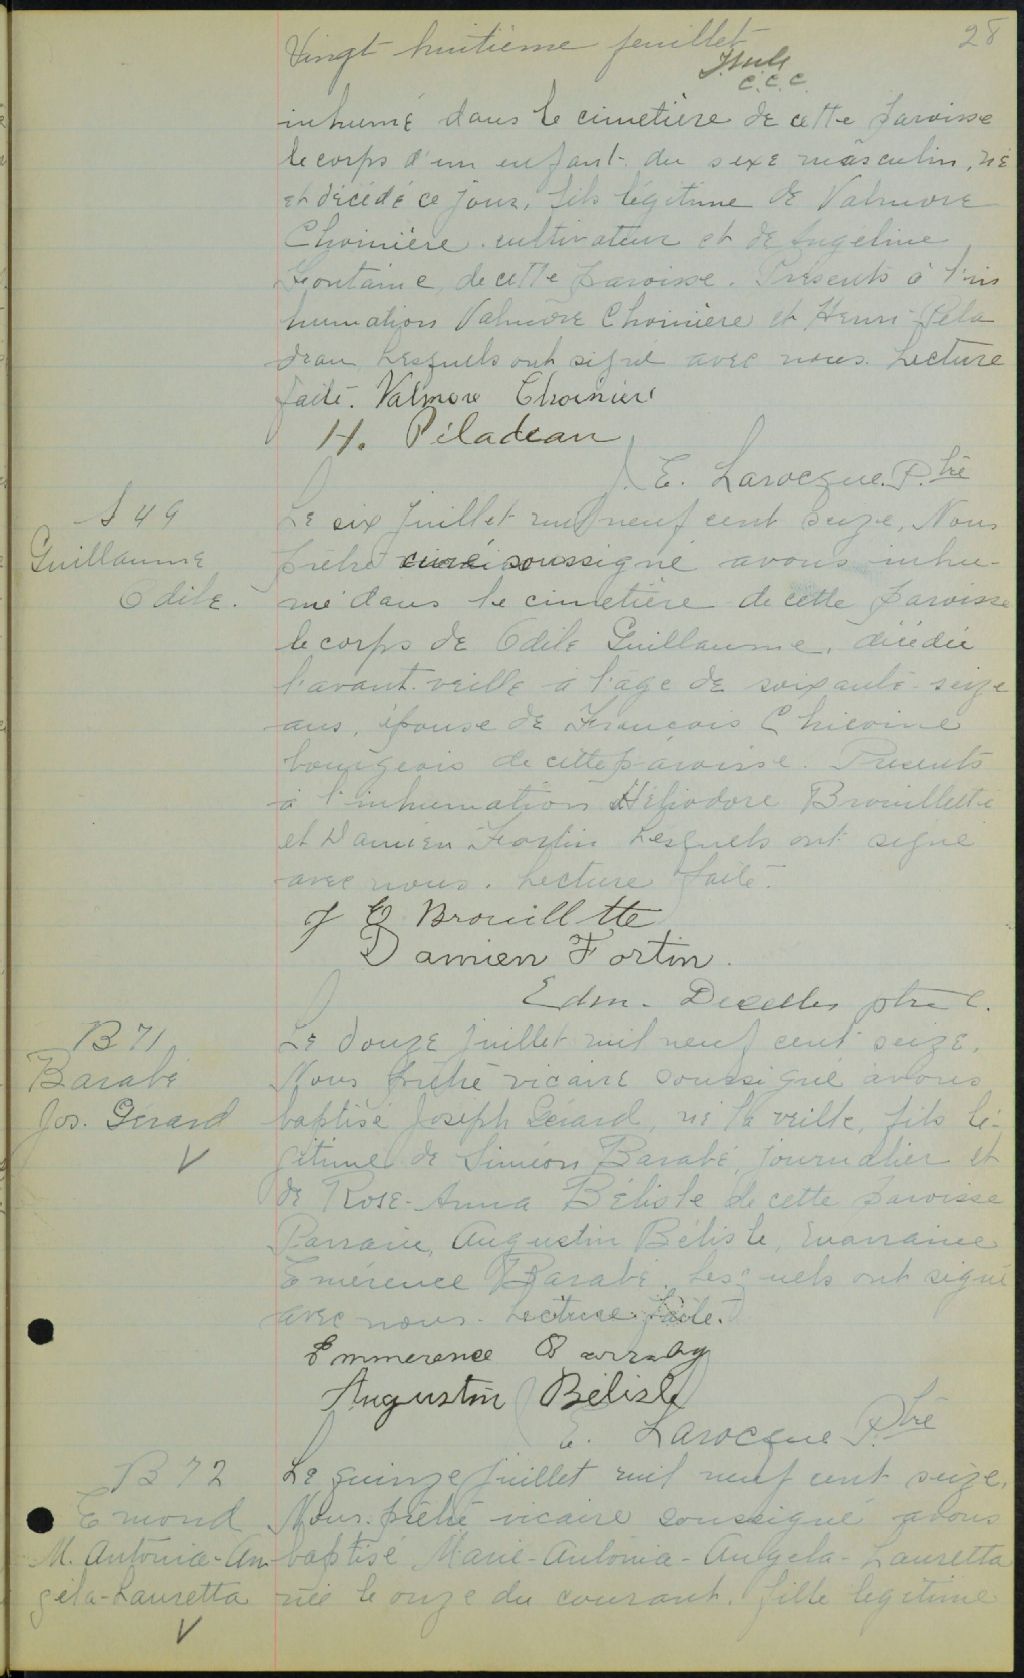 28
Vingt huitième feuillet
C.C.C.
inhumé dans le cimetière de cette paroisse
le corps d'un enfant du sexe masculin, né
et décédé ce jour, fils légitime de Valmore
Choinière cultivateur et de Angéline
Fontaine, de cette paroisse. Présents à l'in
humation Valmore Choinière et Henri Péla
deau lesquels ont signé avec nous. Lecture
faite. Valmore Choinière
H. Péladeau
J. E. Larocque. Ptre
S 49
Guillaume
Odile.
Le six juillet mil neuf cent seize, Nous
prêtre curé soussigné avons inhu-
mé dans le cimetière de cette paroisse
le corps de Odile Guillaume, décédée
l'avant-veille à l'âge de soixante-seize
ans, épouse de François Chicoine
bourgeois de cette paroisse. Présents
à l'inhumation Héliodore Brouillette
et Damien Fortin lesquels ont signé
avec nous. Lecture faite.
J E Brouillette
Damien Fortin.
Edm. Decelles ptre c.
B 71
Barabé
Jos. Gérard
Le douze juillet mil neuf cent seize,
Nous prêtre vicaire soussigné avons
baptisé Joseph Gérard, né la veille, fils lé-
gitime de Siméon Barabé, journalier et
de Rose-Anna Bélisle de cette paroisse
Parrain, Augustin Bélisle, marraine
Emérence Barabé. Lesquels ont signé
avec nous. Lecture faite.
Emmerence Barraby
Augustin Bélisle
J. E. Larocque Ptre
B 72
Emond
M. Antonia-An
géla-Lauretta
Le quinze juillet mil neuf cent seize,
Nous prêtre vicaire soussigné avons
baptisé Marie-Antonia-Angela-Lauretta
née le onze du courant, fille légitime